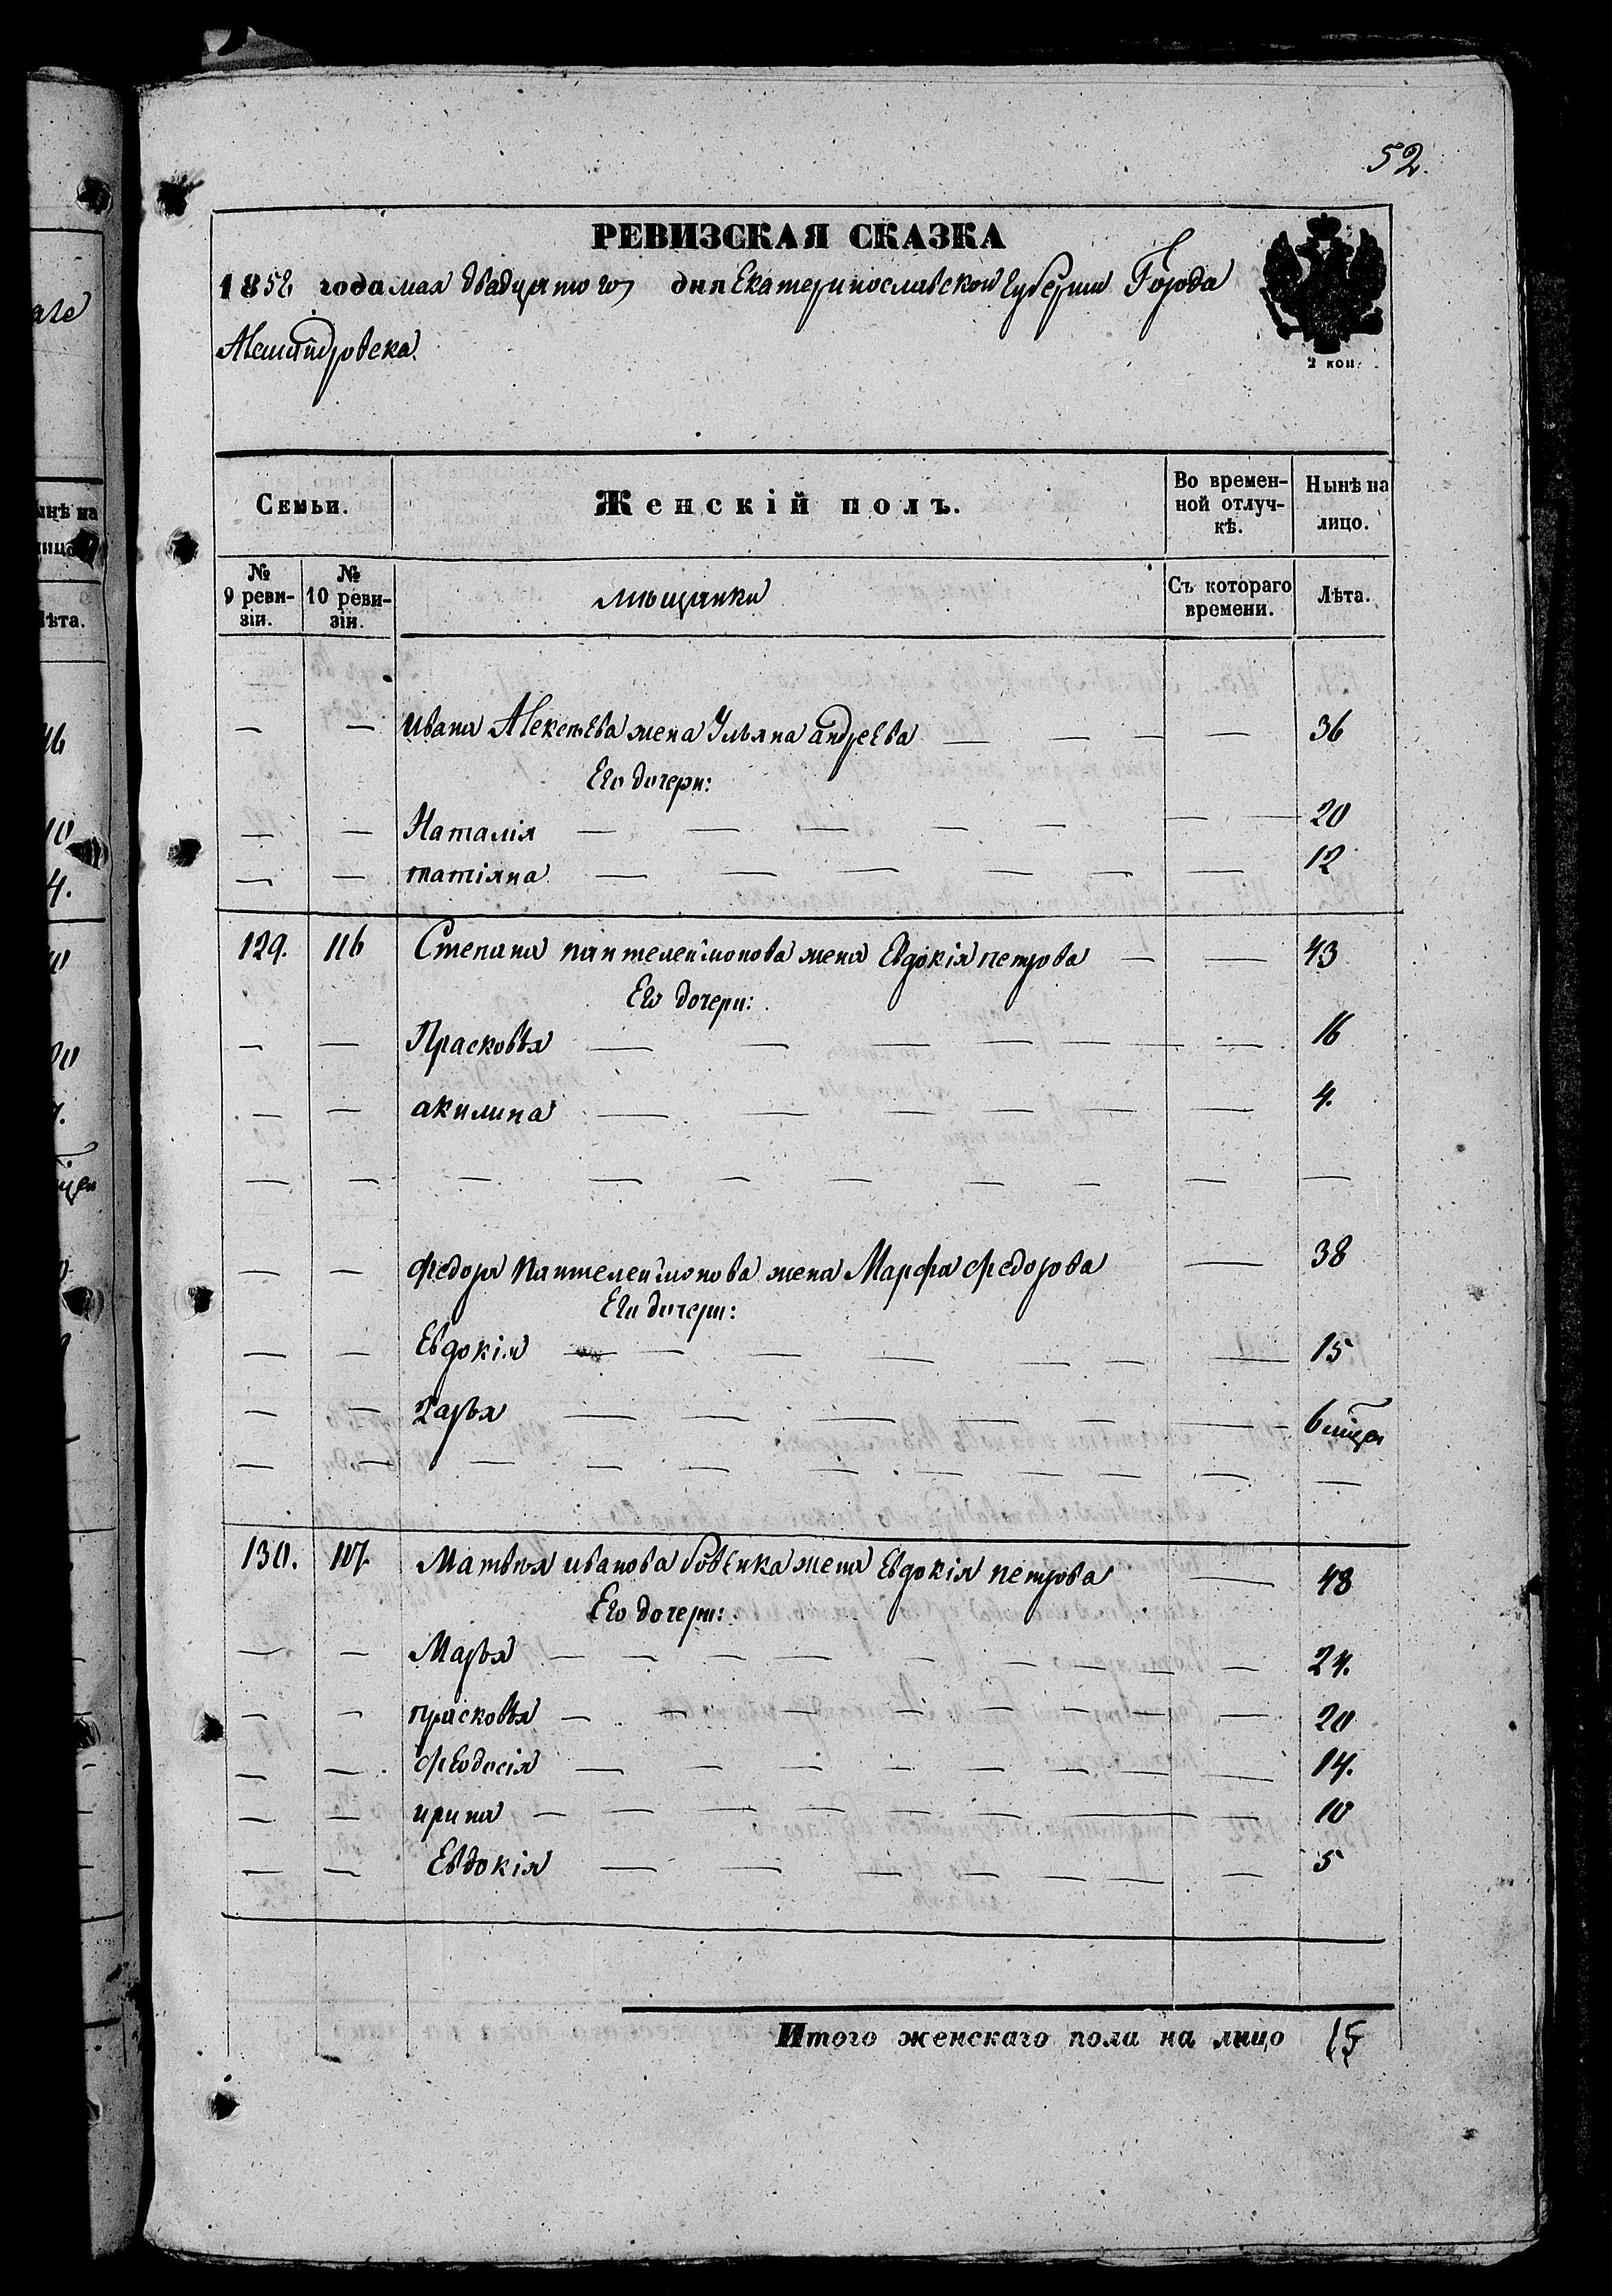 52.
РЕВИЗСКАЯ СКАЗКА
1858 года мая двадцятого дня Екатеринославской Губернии Города
Александровска
2 коп.
Семьи.
Женскій полъ.
Во времен-
ной отлуч-
кѣ.
Нынѣ на
лицо.
№
9 реви-
зіи.
№
10 реви-
зіи.
мѣщанки
Съ котораго
времени.
Лѣта.
— — Ивана Алексѣева жена Ульяна андреева — 36
Его дочери:
— — Наталія — 20
— — татіяна — 12
129. 116 Степана пантелеймонова жена Евдокія петрова — 43
Его дочери:
— — Прасковья — 16
— — акилина — 4.
— — — — —
— — Федора Пантелеймонова жена Марфа Федорова — 38
Его дочери:
— — Евдокія — 15
— — Дарья — 6 мѣсец
— — — — —
130. 117 Матвѣя иванова жена Евдокія петрова — 48
Его дочери:
— — Марья — 24.
— — прасковья — 20
— — Феодосія — 14.
— — ирина — 10
— — Евдокія — 5
Итого женскаго пола на лицо 15